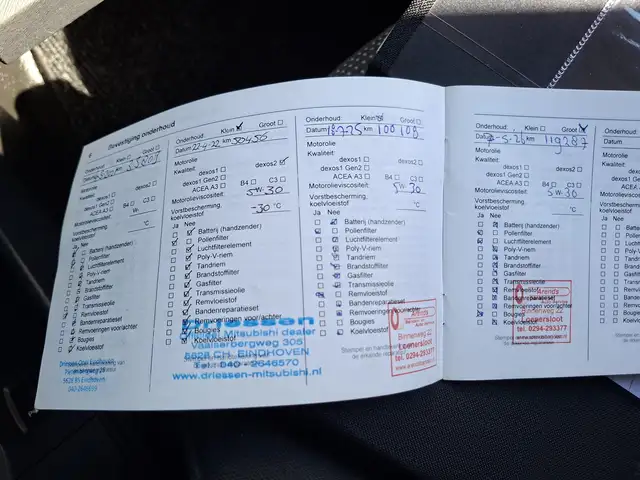 Bevestiging onderhoud
Onderhoud: Klein Groot
Motorolie
Kwaliteit:
dexos1
dexos2
dexos1 Gen2
ACEA A3 B4 C3
Motorolieviscositeit:
Vorstbescherming,
koelvloeistof °C
Ja Nee
Batterij (handzender)
Pollenfilter
Luchtfilterelement
Poly-V-riem
Tandriem
Brandstoffilter
Gasfilter
Transmissieolie
Remvloeistof
Bandenreparatieset
Remvoeringen voor/achter
Bougies
Koelvloeistof
5628 RS Eindhoven
Onderhoud: Klein Groot
Datum 22-4-22 km 50450
Motorolie
Kwaliteit:
dexos1 dexos2
dexos1 Gen2
ACEA A3 B4 C3
Motorolieviscositeit: 5W-30
Vorstbescherming,
koelvloeistof -30 °C
Ja Nee
Batterij (handzender)
Pollenfilter
Luchtfilterelement
Poly-V-riem
Tandriem
Brandstoffilter
Gasfilter
Transmissieolie
Remvloeistof
Bandenreparatieset
Remvoeringen voor/achter
Bougies
Koelvloeistof
Driessen
Mitsubishi dealer
Vaalserbergweg 305
5628 CH EINDHOVEN
Tel. 040 - 2646570
www.driessen-mitsubishi.nl
Onderhoud: Klein Groot
Datum km 100 109
Motorolie
Kwaliteit:
dexos1 dexos2
dexos1 Gen2
ACEA A3 B4 C3
Motorolieviscositeit: 5W30
Vorstbescherming,
koelvloeistof °C
Ja Nee
Batterij (handzender)
Pollenfilter
Luchtfilterelement
Poly-V-riem
Tandriem
Brandstoffilter
Gasfilter
Transmissieolie
Remvloeistof
Bandenreparatieset
Remvoeringen voor/achter
Bougies
Koelvloeistof
Arends
Binnenweg 22
Loenersloot
tel. 0294-293377
Onderhoud: Klein Groot
Datum km 119287
Motorolie
Kwaliteit:
dexos1 dexos2
dexos1 Gen2
ACEA A3 B4 C3
Motorolieviscositeit: 5W30
Vorstbescherming,
koelvloeistof °C
Ja Nee
Batterij (handzender)
Pollenfilter
Luchtfilterelement
Poly-V-riem
Tandriem
Brandstoffilter
Gasfilter
Transmissieolie
Remvloeistof
Bougies
Koelvloeistof
Arends
Binnenweg 22
Loenersloot
tel. 0294-293377
Onderhoud:
Datum
Motorolie
Kwaliteit: